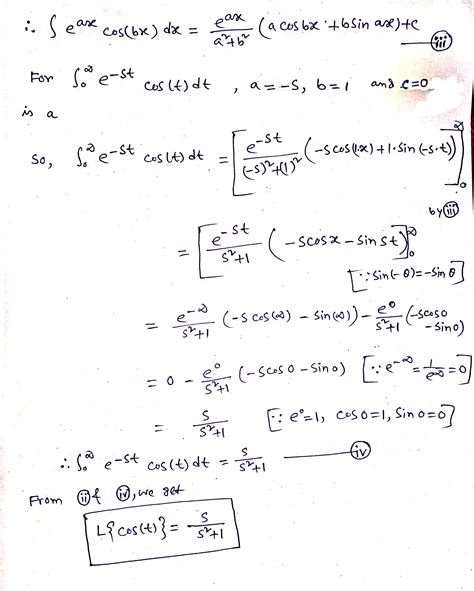 ∴ ∫ e^ax cos(bx) dx = e^ax/(a²+b²) (a cosbx + b sin ax) + c —(iii)
For ∫₀^∞ e^-st cos(t) dt , a = -s, b = 1 and c=0
is a
So, ∫₀^∞ e^-st cos(t) dt = [e^-st/((-s)²+(1)²) (-s cos(1.x) + 1. sin(-s.t))]₀^∞
by (iii)
= [e^-st/(s²+1) (-s cosx - sin st)]₀^∞
[∵ sin(-θ) = -sin θ]
= e^-∞/(s²+1) (-s cos(∞) - sin(∞)) - e^0/(s²+1) (-s cos0 - sin0)
= 0 - e^0/(s²+1) (-s cos0 - sin0) [∵ e^-∞ = 1/e^∞ = 0]
= s/(s²+1) [∵ e^0=1, cos0=1, sin0=0]
∴ ∫₀^∞ e^-st cos(t) dt = s/(s²+1) —(iv)
From (ii) & (iv), we get
L{cos(t)} = s/(s²+1)